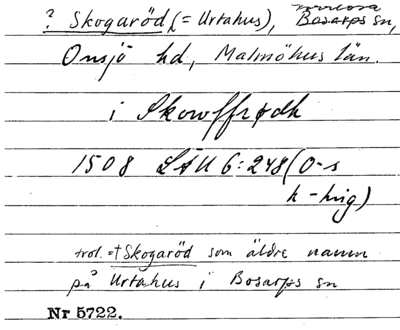 ? Skogaröd (= Urtahus), Bosarps sn,
Onsjö hd, Malmöhus län.
i Skowffrødh
1508 LÅU 6:248 (O-s
h-hig)
trol. = † Skogaröd som äldre namn
på Urtahus i Bosarps sn
Nr 5722.